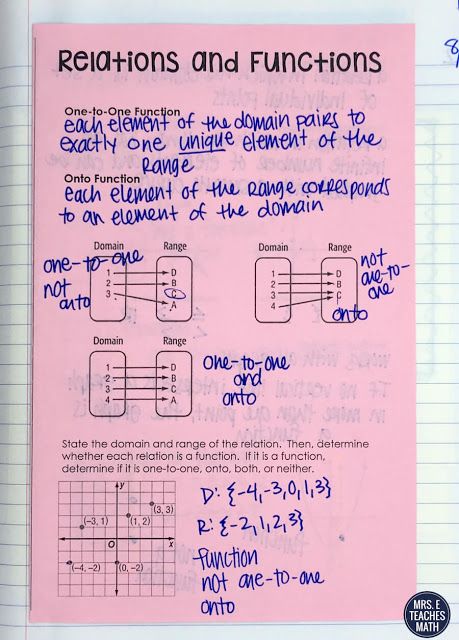 8/
Relations and Functions
One-to-One Function
each element of the domain pairs to
exactly one unique element of the
Range
Onto Function
each element of the Range corresponds
to an element of the domain
Domain Range
one-to-one
not
onto
1 D
2 B
3 C
A
Domain Range
not
one-to-
one
1 D
2 B
3 C
4
onto
Domain Range
1 D
2 B
3 C
4 A
one-to-one
and
onto
State the domain and range of the relation. Then, determine
whether each relation is a function. If it is a function,
determine if it is one-to-one, onto, both, or neither.
y
(3, 3)
(−3, 1) (1, 2)
O x
(−4, −2) (0, −2)
D: {-4,-3,0,1,3}
R: {-2,1,2,3}
function
not one-to-one
onto
MRS. E
TEACHES
MATH